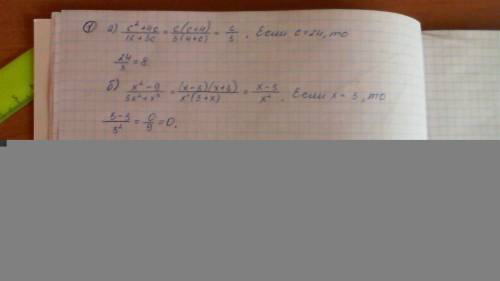 ① а) (c²+4c)/(12+3c) = (c(c+4))/(3(4+c)) = c/3, Если c=24, то
24/3 = 8.
б) (x²-9)/(3x²+x³) = ((x-3)(x+3))/(x²(3+x)) = (x-3)/x². Если x=3, то
(3-3)/3² = 0/9 = 0.